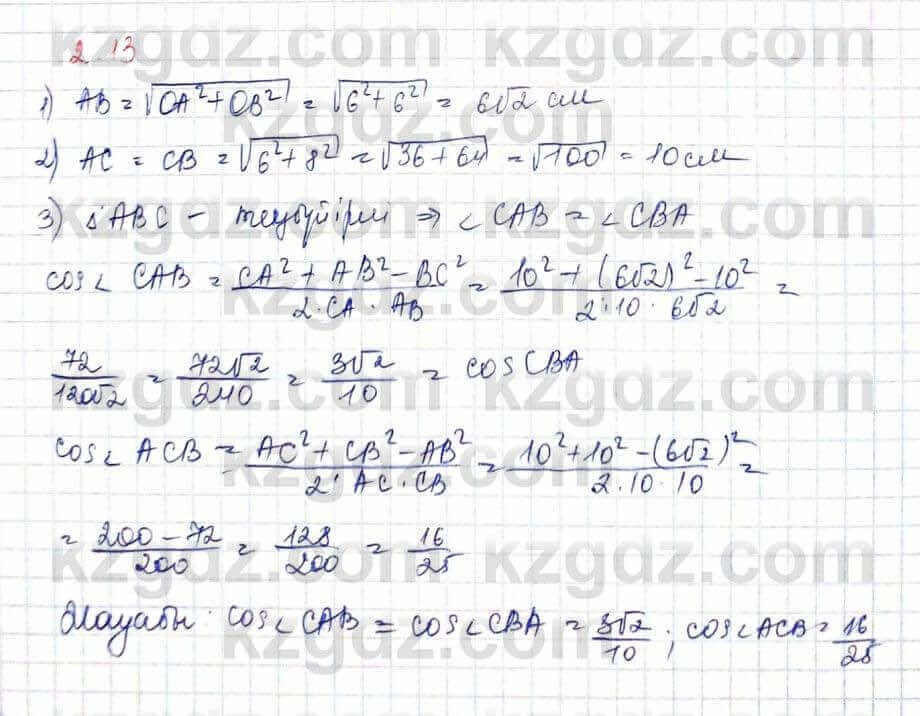 2.13
1) AB = √(OA² + OB²) = √(6² + 6²) = 6√2 см
2) AC = CB = √(6² + 8²) = √(36 + 64) = √100 = 10 см
3) △ABC – теңбүйірлі ⇒ ∠CAB = ∠CBA
cos∠CAB = (CA² + AB² – BC²)/(2·CA·AB) = (10² + (6√2)² – 10²)/(2·10·6√2) =
72/(120√2) = 72√2/240 = 3√2/10 = cos CBA
cos∠ACB = (AC² + CB² – AB²)/(2·AC·CB) = (10² + 10² – (6√2)²)/(2·10·10) =
= (200 – 72)/200 = 128/200 = 16/25
Жауабы: cos∠CAB = cos∠CBA = 3√2/10; cos∠ACB = 16/25
kzgdz.com